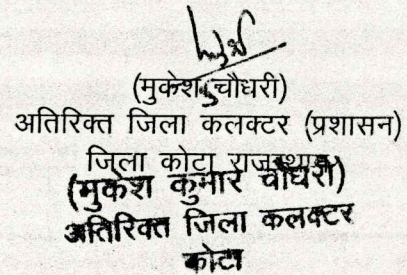 (मुकेश चौधरी)
अतिरिक्त जिला कलक्टर (प्रशासन)
जिला कोटा राजस्थान
(मुकेश कुमार चौधरी)
अतिरिक्त जिला कलक्टर
कोटा